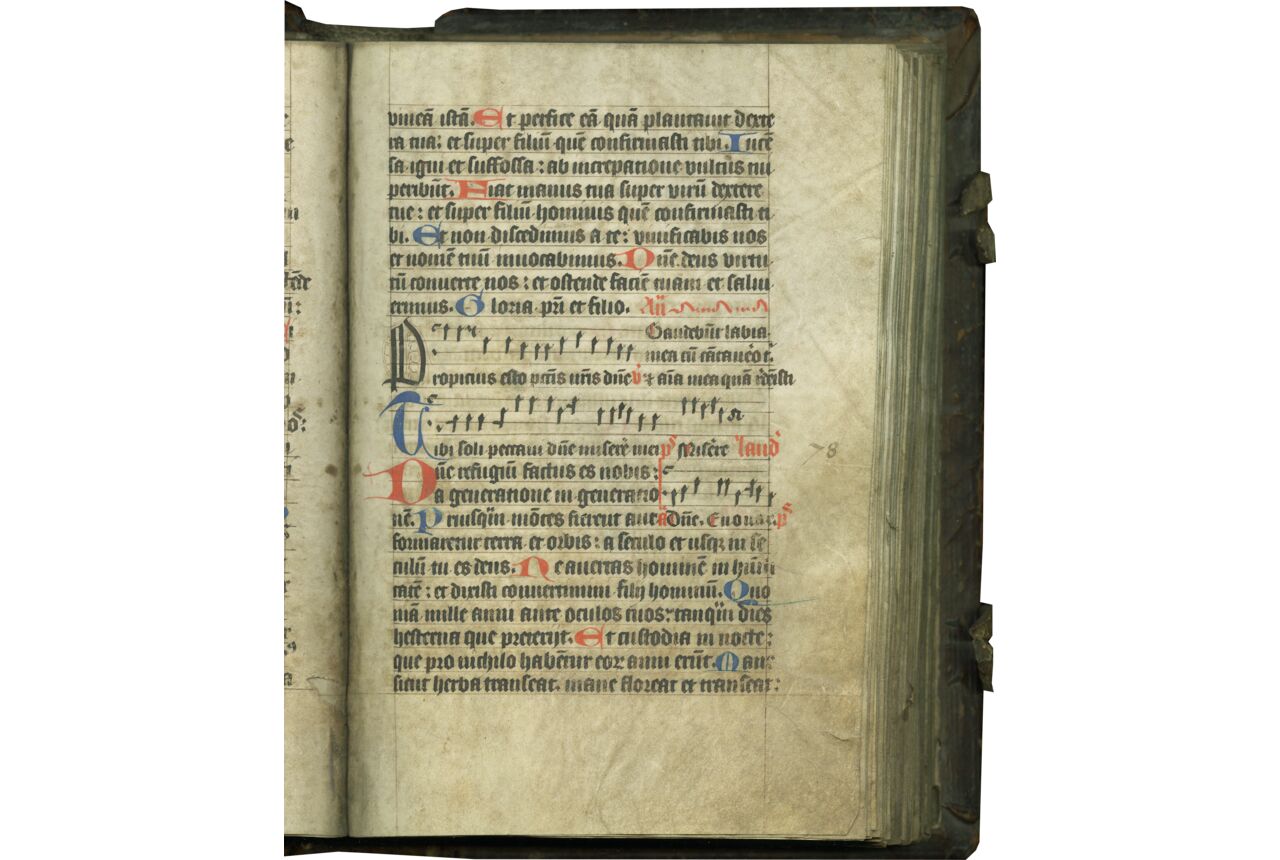 vineā istā. Et perfice eā quā plantavit dexte
ra tua: et super filiū quē confirmasti tibi. Incē
sa igni et suffossa: ab increpatione vultus tui
peribūt. Fiat manus tua super virū dextere
tue: et super filiū hominis quē confirmasti ti
bi. Et non discedimus a te: vivificabis nos
et nomē tuū invocabimus. Dñe deus virtu
tū converte nos: et ostende faciē tuam et salvi
erimus. Gloria pri et filio. Añ
Gaudebūt labia
mea cū cātavero t.
Propicius esto pctis nris dñe v̄ et aīa mea quā redisti
Tibi soli peccavi dñe miserē mei ps Miserē laud
Dñe refugiū factus es nobis:
a generatione in generatio
nē. Priusqͣm mōtes fierent aut a Dñe. Euouae. ps
formaretur terra et orbis: a seculo et usqꝫ in se
culū tu es deus. Ne avertas hominē in humili
tatē: et dixisti convertimini filij hominū. Quo
niā mille anni ante oculos tuos: tanqͣm dies
hesterna que preterijt. Et custodia in nocte:
que pro nichilo habētur eoꝝ anni erūt. Mane
sicut herba transeat. mane floreat et transeat:
78